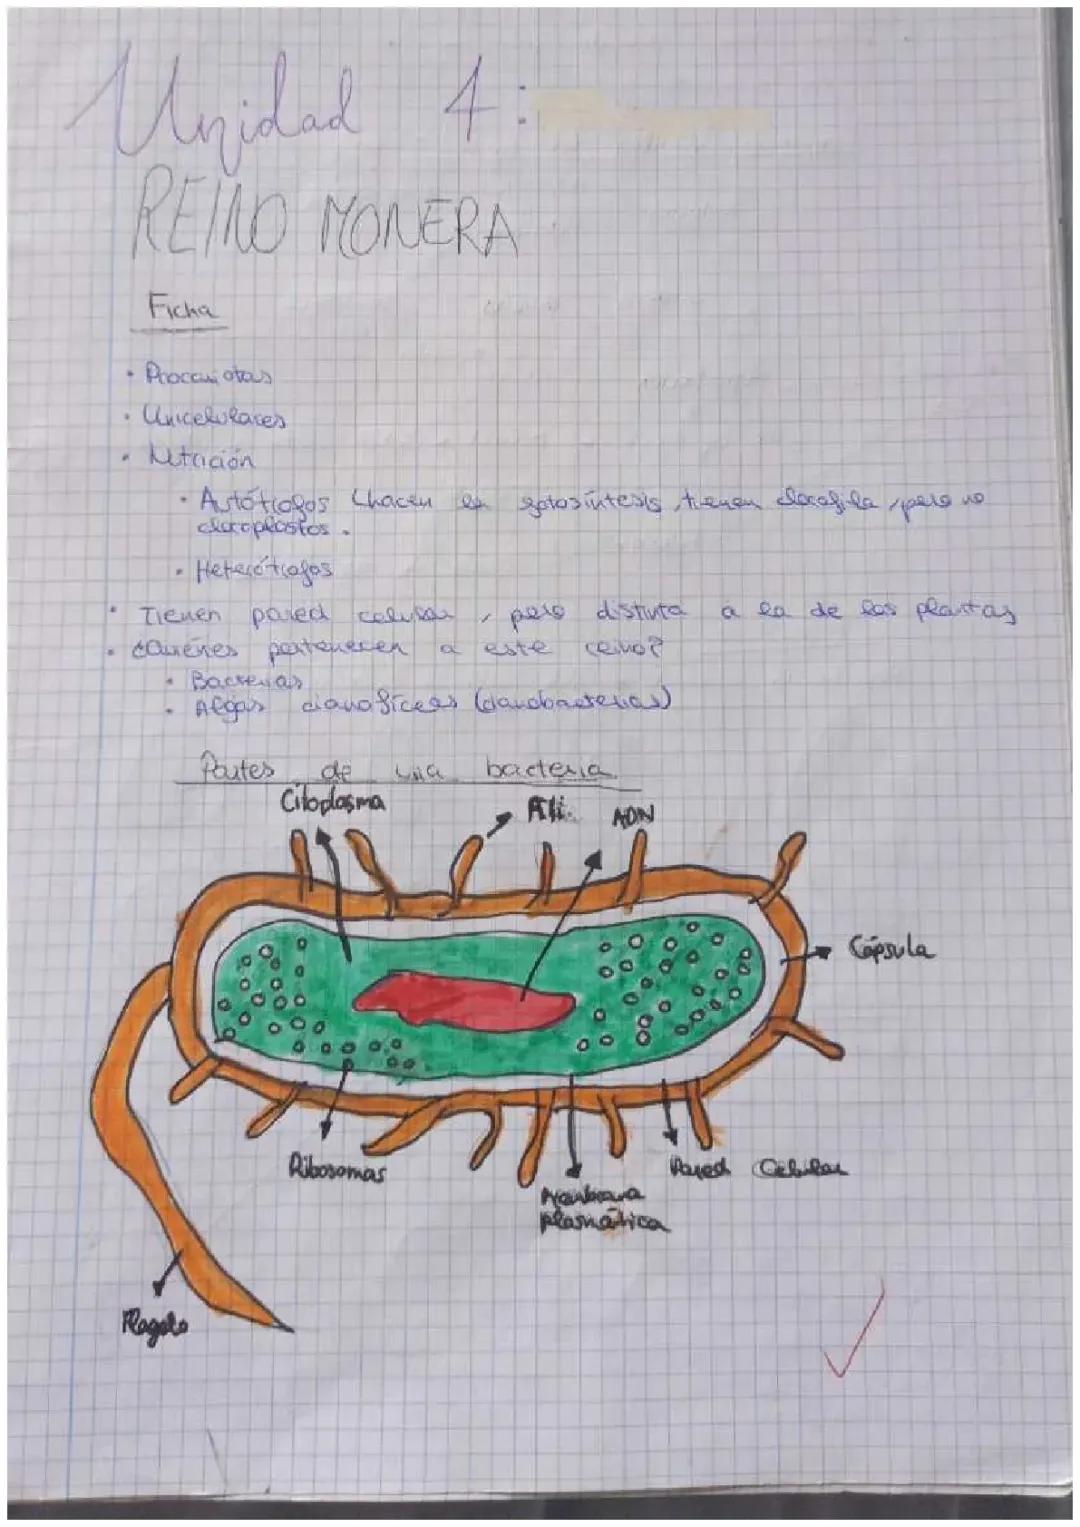 Unidad 4:
REINO MONERA
Ficha
• Procariotas
• Unicelulares
• Nutrición
• Autótrofos (hacen la fotosíntesis, tienen clorofila, pero no
cloroplastos.
• Heterótrofos
• Tienen pared celular, pero distinta a la de las plantas
• ¿Quiénes pertenecen a este reino?
• Bacterias
• Algas cianofíceas (cianobacterias)
Partes de una bacteria
Citoplasma
Pili
ADN
Cápsula
Ribosomas
Pared Celular
Membrana
plasmática
Flagelo